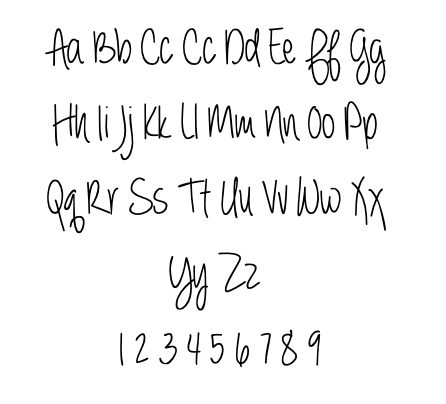 Aa Bb Cc Cc Dd Ee ff Gg
Hh Ii Jj Kk Ll Mm Nn Oo Pp
Qq Rr Ss Tt Uu Vv Ww Xx
Yy Zz
1 2 3 4 5 6 7 8 9